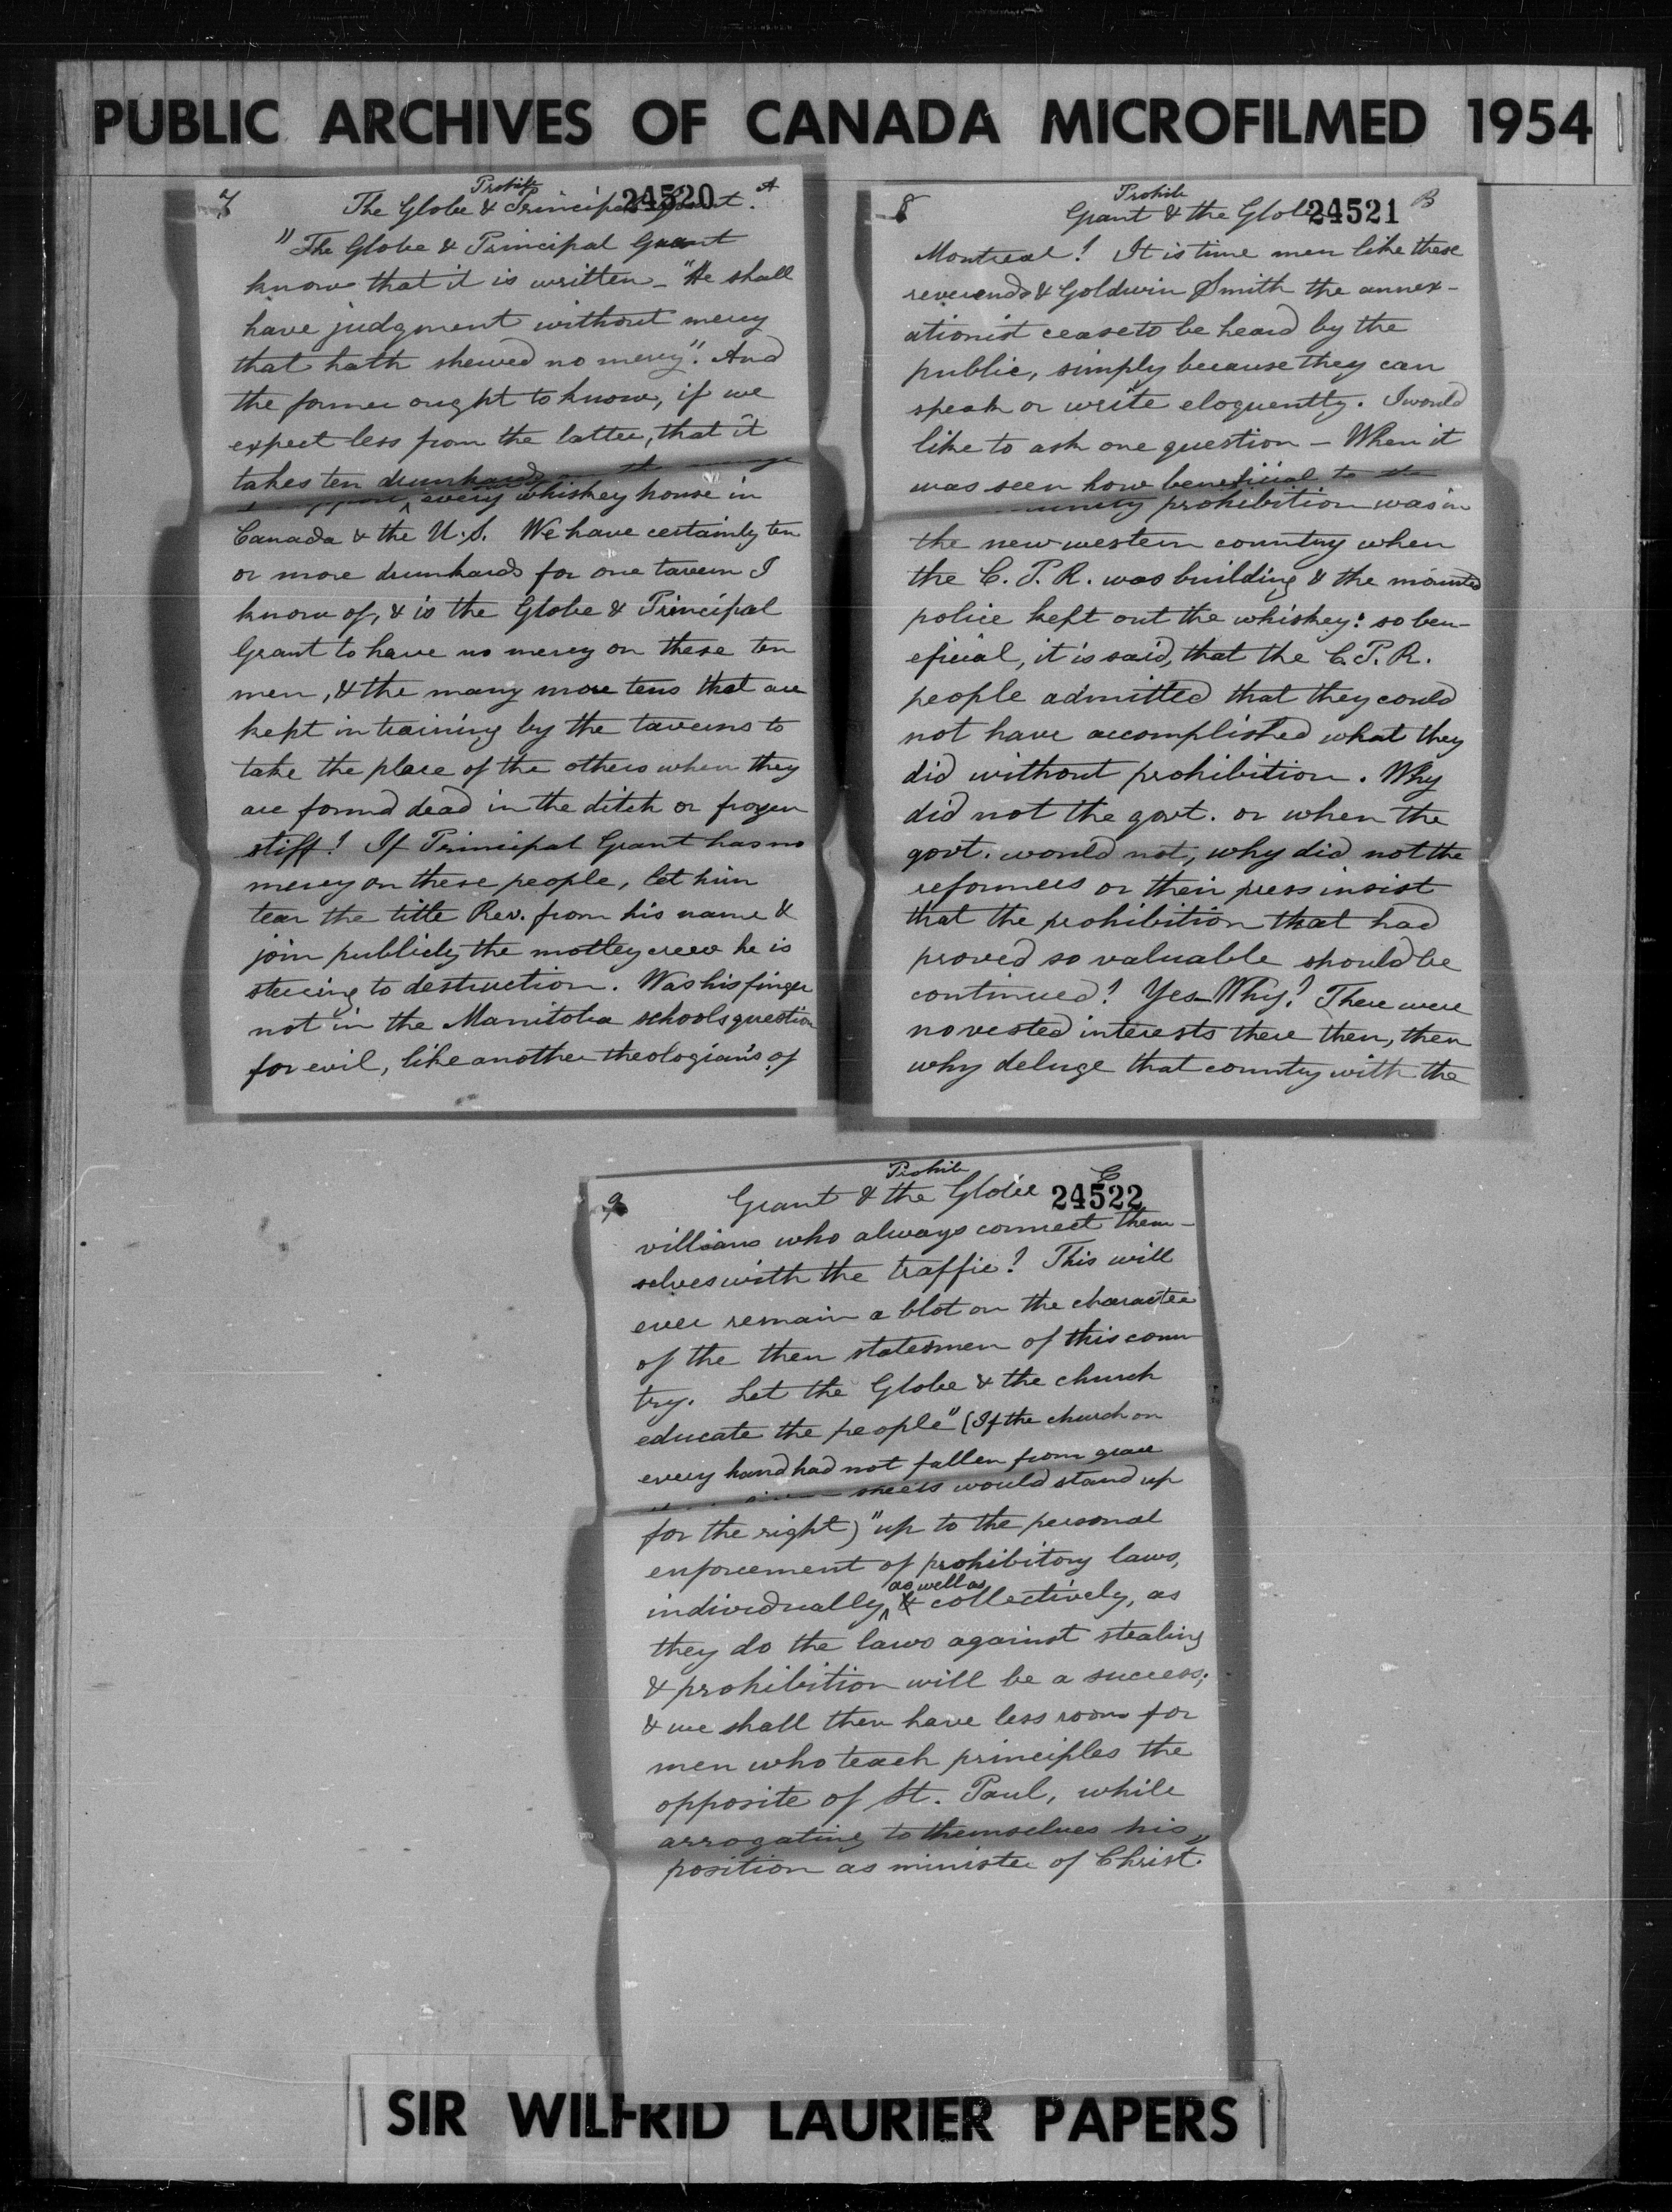 PUBLIC ARCHIVES OF CANADA MICROFILMED 1954
7 Prohib 24520 A
The Globe & Principal Grant.
"The Globe & Principal Grant
know that it is written - "He shall
have judgment without mercy
that hath shewed no mercy". And
the former ought to know, if we
expect less from the latter, that it
takes ten drunkards
every whiskey house in
Canada & the U.S. We have certainly ten
or more drunkards for one tavern I
know of, & is the Globe & Principal
Grant to have no mercy on these ten
men, & the many more tens that are
kept in training by the taverns to
take the place of the others when they
are found dead in the ditch or frozen
stiff! If Principal Grant has no
mercy on these people, let him
tear the title Rev. from his name &
join publicly the motley crew he is
steering to destruction. Was his finger
not in the Manitoba schools question
for evil, like another theologian's of
8 Prohib 24521 B
Grant & the Globe
Montreal! It is time men like these
reverends & Goldwin Smith the annex-
ationist cease to be heard by the
public, simply because they can
speak or write eloquently. I would
like to ask one question - When it
was seen how beneficial to the
prohibition was in
the new western country when
the C.P.R. was building & the mounted
police kept out the whiskey: so ben-
eficial, it is said, that the C.P.R.
people admitted that they could
not have accomplished what they
did without prohibition. Why
did not the govt. or when the
govt. would not, why did not the
reformers or their press insist
that the prohibition that had
proved so valuable should be
continued? Yes - Why? There were
no vested interests there then, then
why deluge that country with the
9 Prohib C
Grant & the Globe 24522
villians who always connect them-
selves with the traffic? This will
ever remain a blot on the character
of the then statesmen of this coun
try. Let the Globe & the church
educate the people" (If the church on
every hand had not fallen from grace
would stand up
for the right) "up to the personal
enforcement of prohibitory laws,
individually, as well as collectively, as
they do the laws against stealing
& prohibition will be a success;
& we shall then have less room for
men who teach principles the
opposite of St. Paul, while
arrogating to themselves his
position as minister of Christ."
SIR WILFRID LAURIER PAPERS